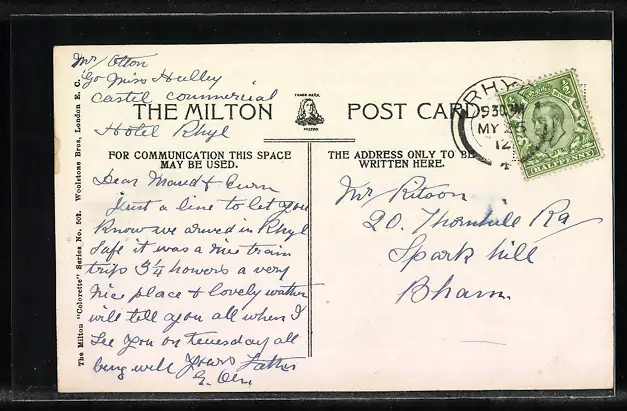 Mr Otton
C/o Miss Hulley
Castel Commercial
Hotel Rhyl
THE MILTON POST CARD
TRADE MARK
MILTON
RHYL
9 30 PM
MY 26
12
HALFPENNY
FOR COMMUNICATION THIS SPACE
MAY BE USED.
THE ADDRESS ONLY TO BE
WRITTEN HERE.
Dear Maud &
Just a line to let you
know we arived in Rhyl
safe it was a nice train
trip 3 1/4 howers a very
nice place & lovely wather
will tell you all when I
see you on tuesday all
being well yours Father
G.
Mr Ritson
20. Thornhill Rd
Spark hill
Bham.
The Milton "Colorette" Series No. 502. Woolstone Bros, London E. C.